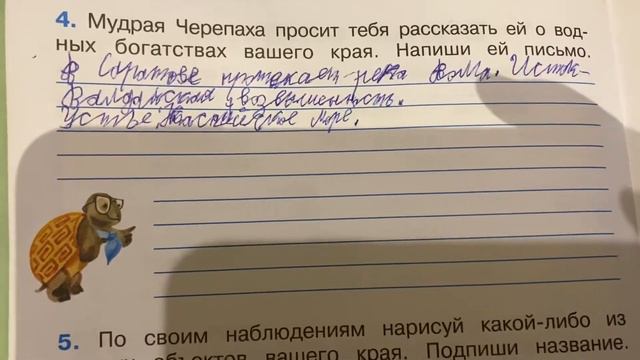 4. Мудрая Черепаха просит тебя рассказать ей о вод-
ных богатствах вашего края. Напиши ей письмо.
В Саратове протекает река Волга. Исток-
Валдайская возвышенность.
Устье Каспийское море.
5. По своим наблюдениям нарисуй какой-либо из
объектов вашего края. Подпиши название.